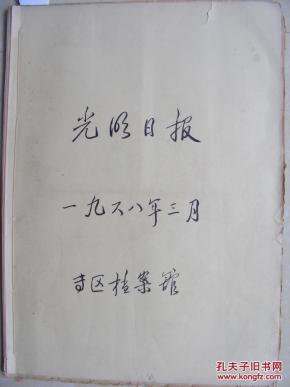 光明日报
一九六八年三月
区档案館
孔夫子旧书网